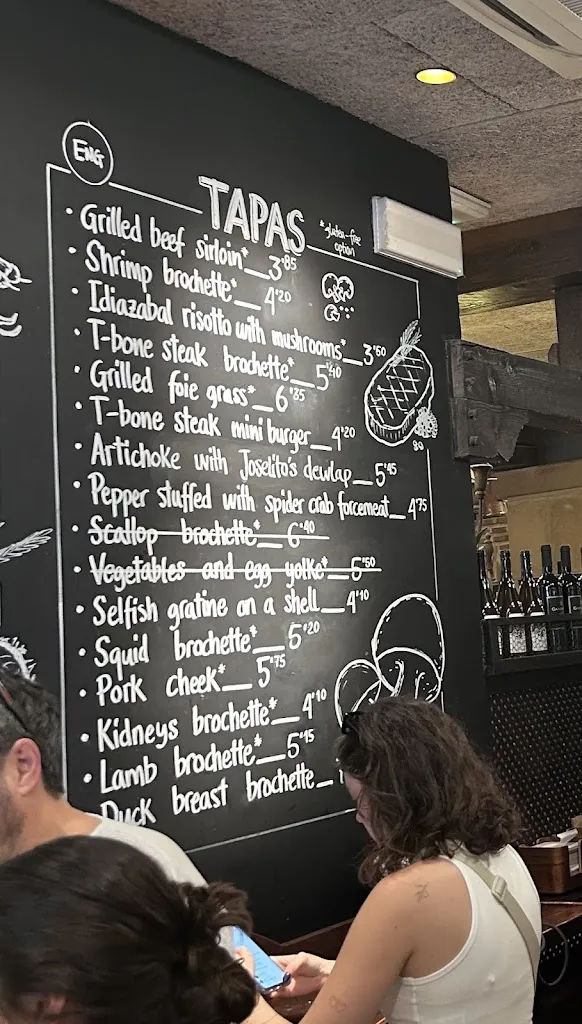 ENG
TAPAS
*gluten-free
option
• Grilled beef sirloin*__3'85
• Shrimp brochette*__4'20
• Idiazabal risotto with mushrooms*__3'50
• T-bone steak brochette*__5'40
• Grilled foie grass*__6'35
• T-bone steak mini burger__4'20
• Artichoke with Joselito's dewlap__5'45
• Pepper stuffed with spider crab forcemeat__4'75
• Scallop brochette*__6'40
• Vegetables and egg yolke*__5'50
• Selfish gratine on a shell__4'10
• Squid brochette*__5'20
• Pork cheek*__5'75
• Kidneys brochette*__4'10
• Lamb brochette*__5'15
Duck breast brochette__